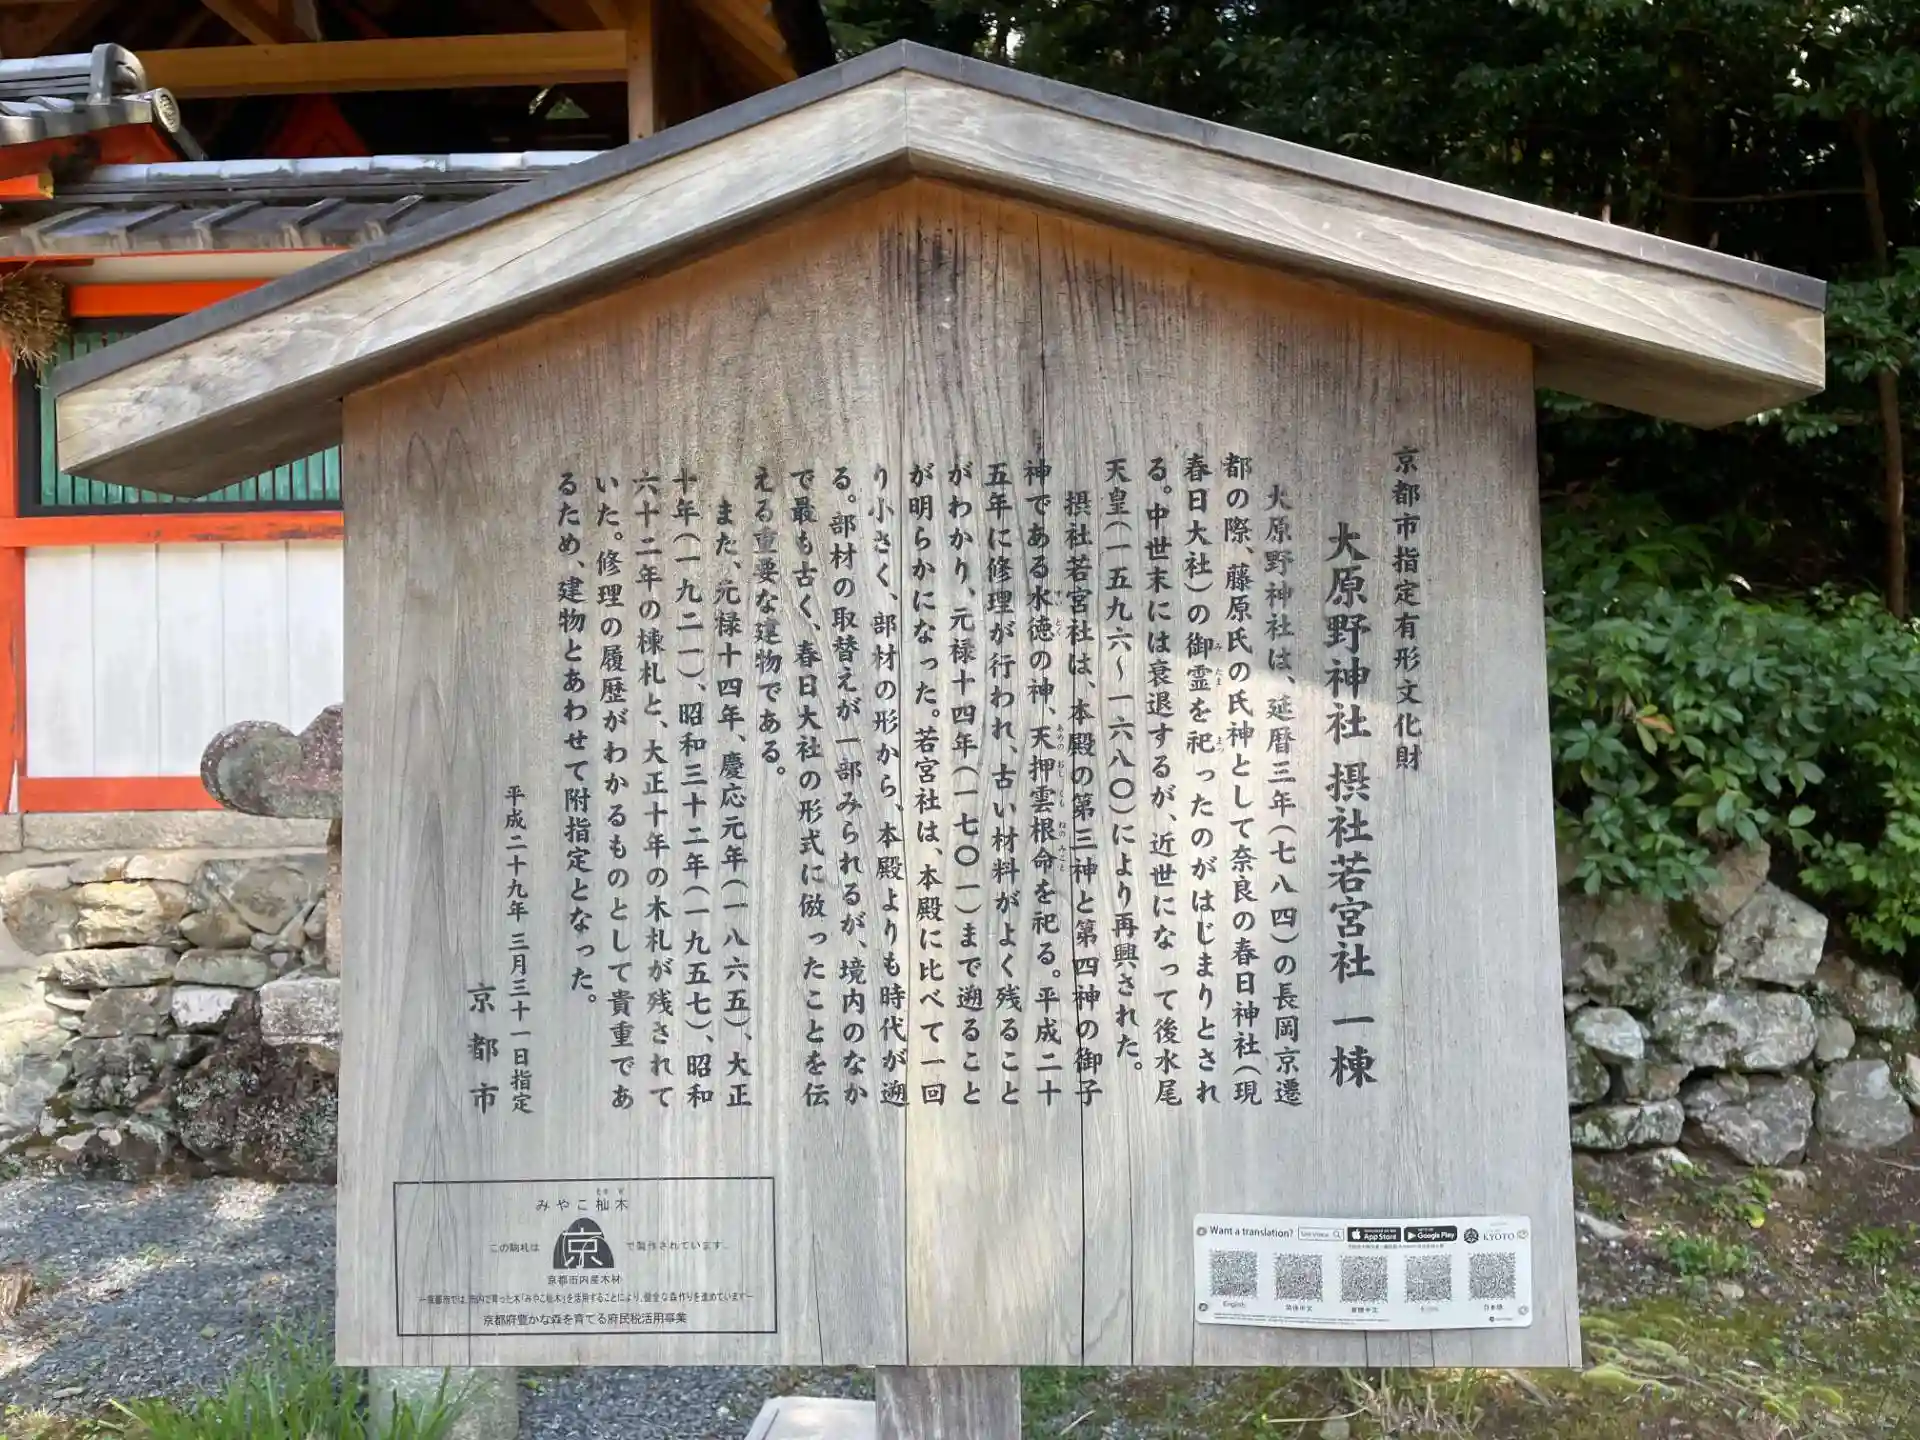 京都市指定有形文化財
大原野神社 摂社若宮社 一棟
大原野神社は、延暦三年(七八四)の長岡京遷
都の際、藤原氏の氏神として奈良の春日神社(現
春日大社)の御霊を祀ったのがはじまりとされ
る。中世末には衰退するが、近世になって後水尾
天皇(一五九六〜一六八〇)により再興された。
摂社若宮社は、本殿の第三神と第四神の御子
神である水徳の神、天押雲根命を祀る。平成二十
五年に修理が行われ、古い材料がよく残ること
がわかり、元禄十四年(一七〇一)まで遡ること
が明らかになった。若宮社は、本殿に比べて一回
り小さく、部材の形から、本殿よりも時代が遡
る。部材の取替えが一部みられるが、境内のなか
で最も古く、春日大社の形式に倣ったことを伝
える重要な建物である。
また、元禄十四年、慶応元年(一八六五)、大正
十年(一九二一)、昭和三十二年(一九五七)、昭和
六十二年の棟札と、大正十年の木札が残されて
いた。修理の履歴がわかるものとして貴重であ
るため、建物とあわせて附指定となった。
平成二十九年三月三十一日指定
京都市
みやこ杣木
この駒札は
京
で製作されています。
京都市内産木材
―京都市では、市内で育った木「みやこ杣木」を活用することにより、健全な森作りを進めています―
京都府豊かな森を育てる府民税活用事業
Want a translation?
App Store
Google Play
KYOTO
English
简体中文
繁體中文
日本語